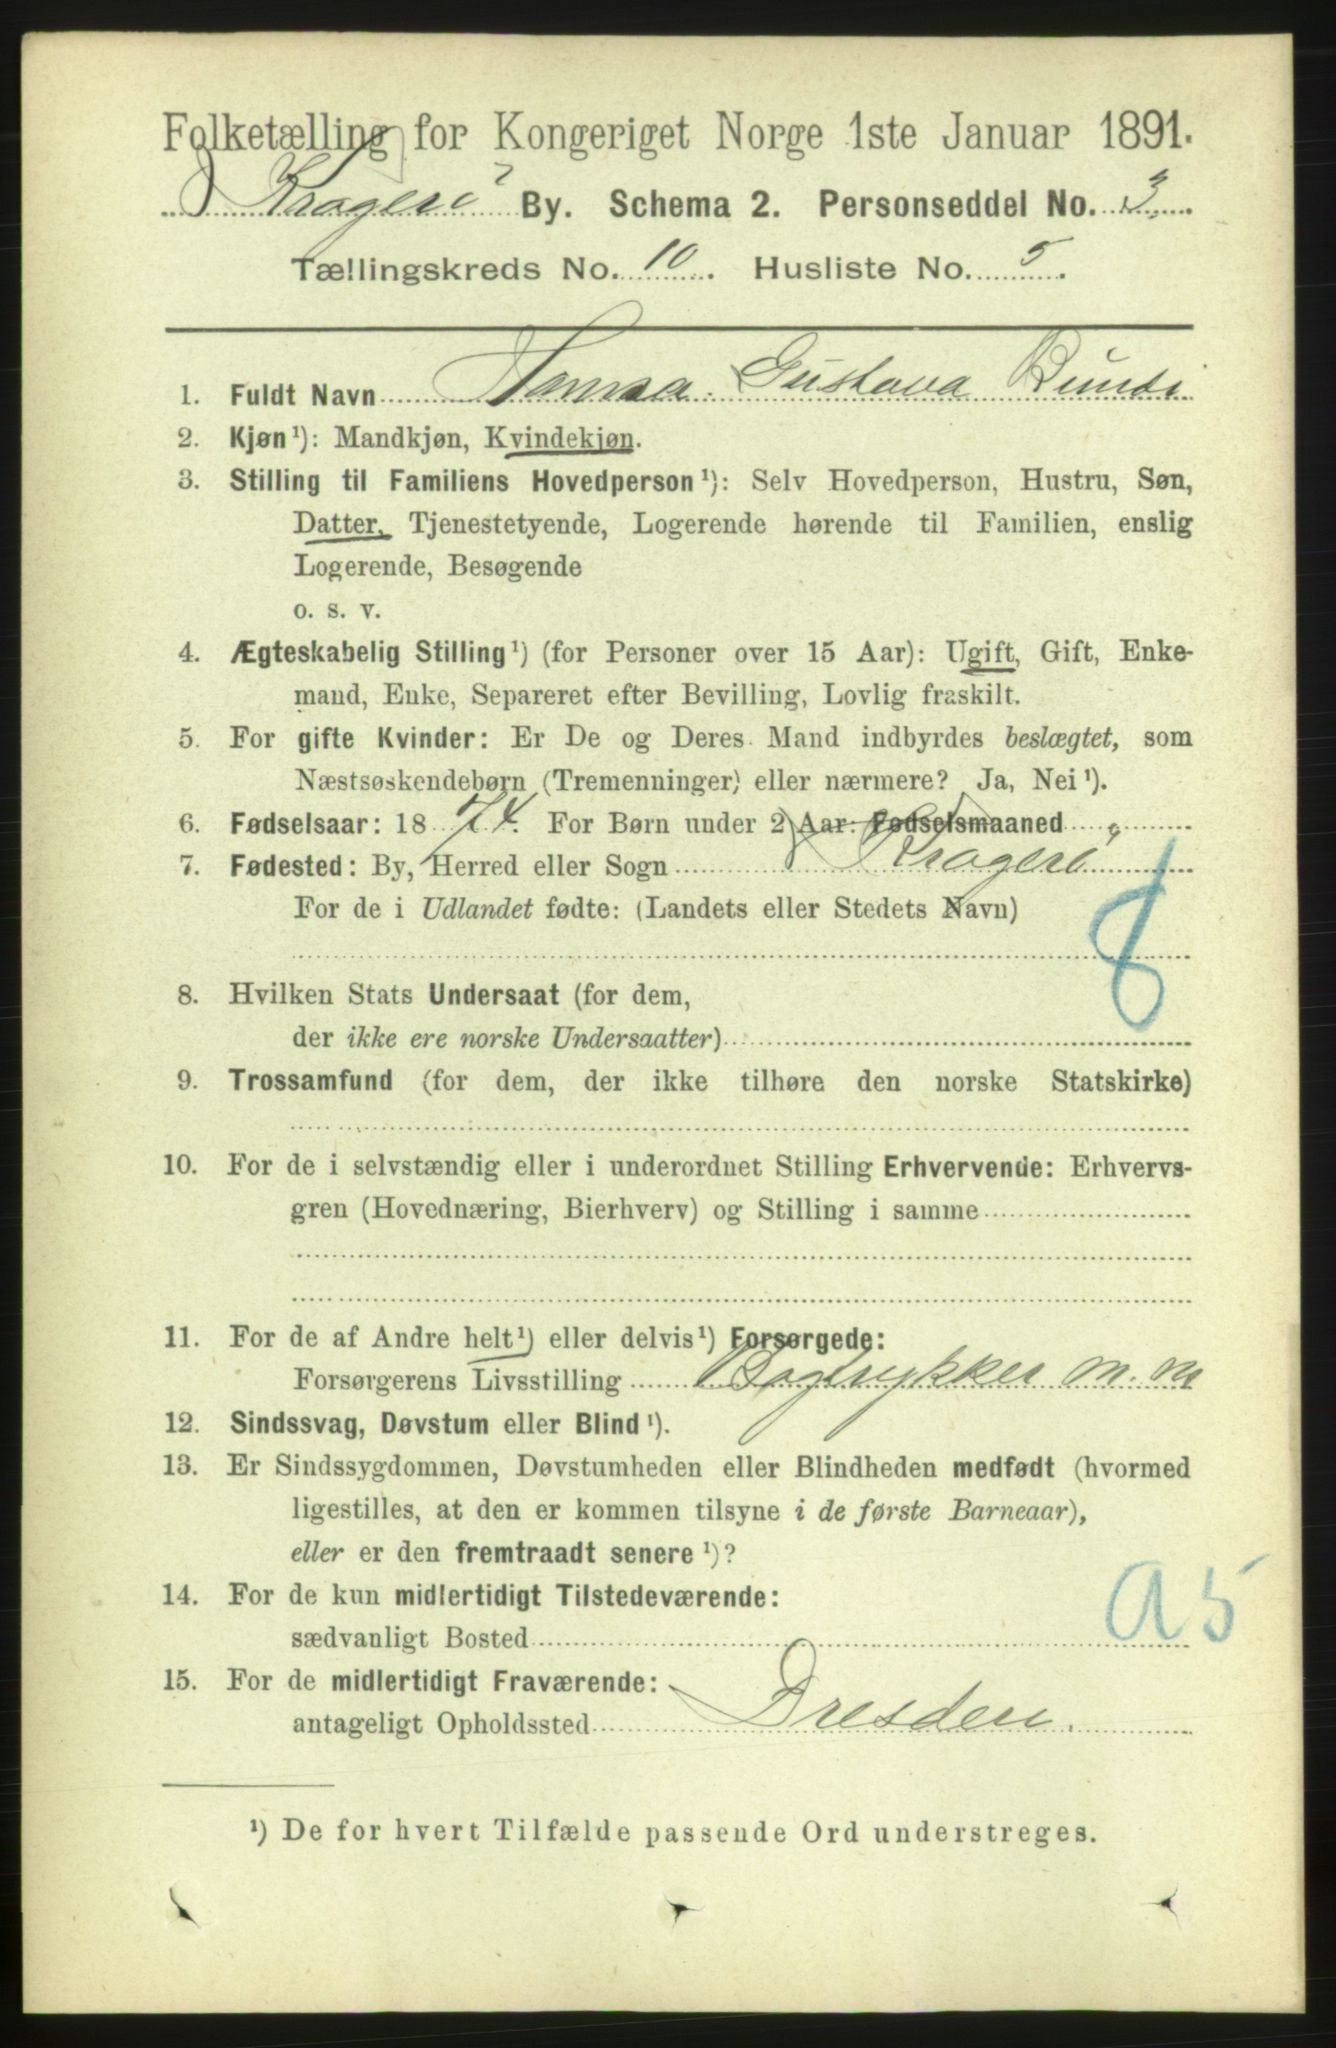 Folketælling for Kongeriget Norge 1ste Januar 1891.
Kragerö By. Schema 2. Personseddel No. 3.
Tællingskreds No. 10. Husliste No. 5.
1. Fuldt Navn Gustava
2. Kjøn¹): Mandkjøn, Kvindekjøn.
3. Stilling til Familiens Hovedperson¹): Selv Hovedperson, Hustru, Søn,
Datter, Tjenestetyende, Logerende hørende til Familien, enslig
Logerende, Besøgende
o. s. v.
4. Ægteskabelig Stilling¹) (for Personer over 15 Aar): Ugift, Gift, Enke-
mand, Enke, Separeret efter Bevilling, Lovlig fraskilt.
5. For gifte Kvinder: Er De og Deres Mand indbyrdes beslægtet, som
Næstsøskendebørn (Tremenninger) eller nærmere? Ja, Nei¹).
6. Fødselsaar: 1874. For Børn under 2 Aar: Fødselsmaaned
7. Fødested: By, Herred eller Sogn Kragerö
For de i Udlandet fødte: (Landets eller Stedets Navn)
8
8. Hvilken Stats Undersaat (for dem,
der ikke ere norske Undersaatter)
9. Trossamfund (for dem, der ikke tilhøre den norske Statskirke)
10. For de i selvstændig eller i underordnet Stilling Erhvervende: Erhvervs-
gren (Hovednæring, Bierhverv) og Stilling i samme
11. For de af Andre helt¹) eller delvis¹) Forsørgede:
Forsørgerens Livsstilling Bogtrykker m. m
12. Sindssvag, Døvstum eller Blind¹).
13. Er Sindssygdommen, Døvstumheden eller Blindheden medfødt (hvormed
ligestilles, at den er kommen tilsyne i de første Barneaar),
eller er den fremtraadt senere¹)?
14. For de kun midlertidigt Tilstedeværende:
sædvanligt Bosted
a 5
15. For de midlertidigt Fraværende:
antageligt Opholdssted Dresden.
¹) De for hvert Tilfælde passende Ord understreges.